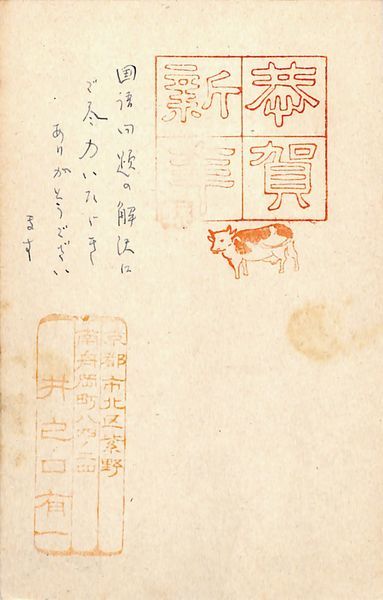 恭賀
新年
国語問題の解決に
ご尽力いただき
ありがとうござい
ます
京都市北区紫野
南舟岡町
井之口有一